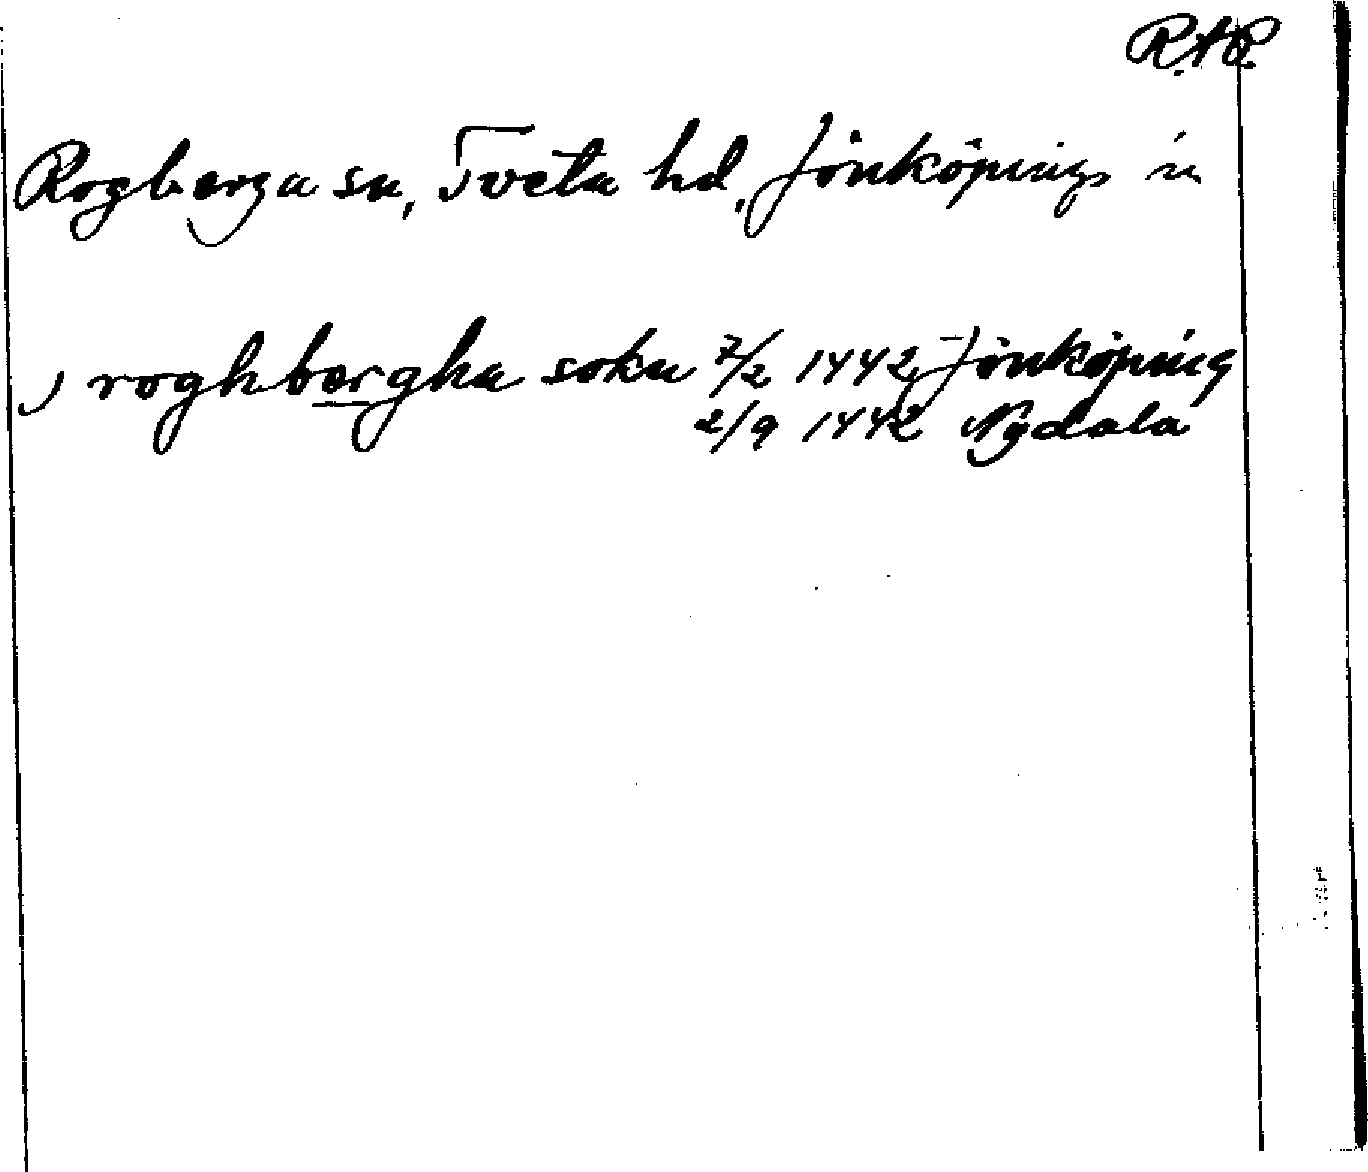 R.A.P.
Rogberga sn, Tveta hd, Jönköpings län
J roghbergha sokn 7/2 1442, Jönköping
2/9 1442 Nydala